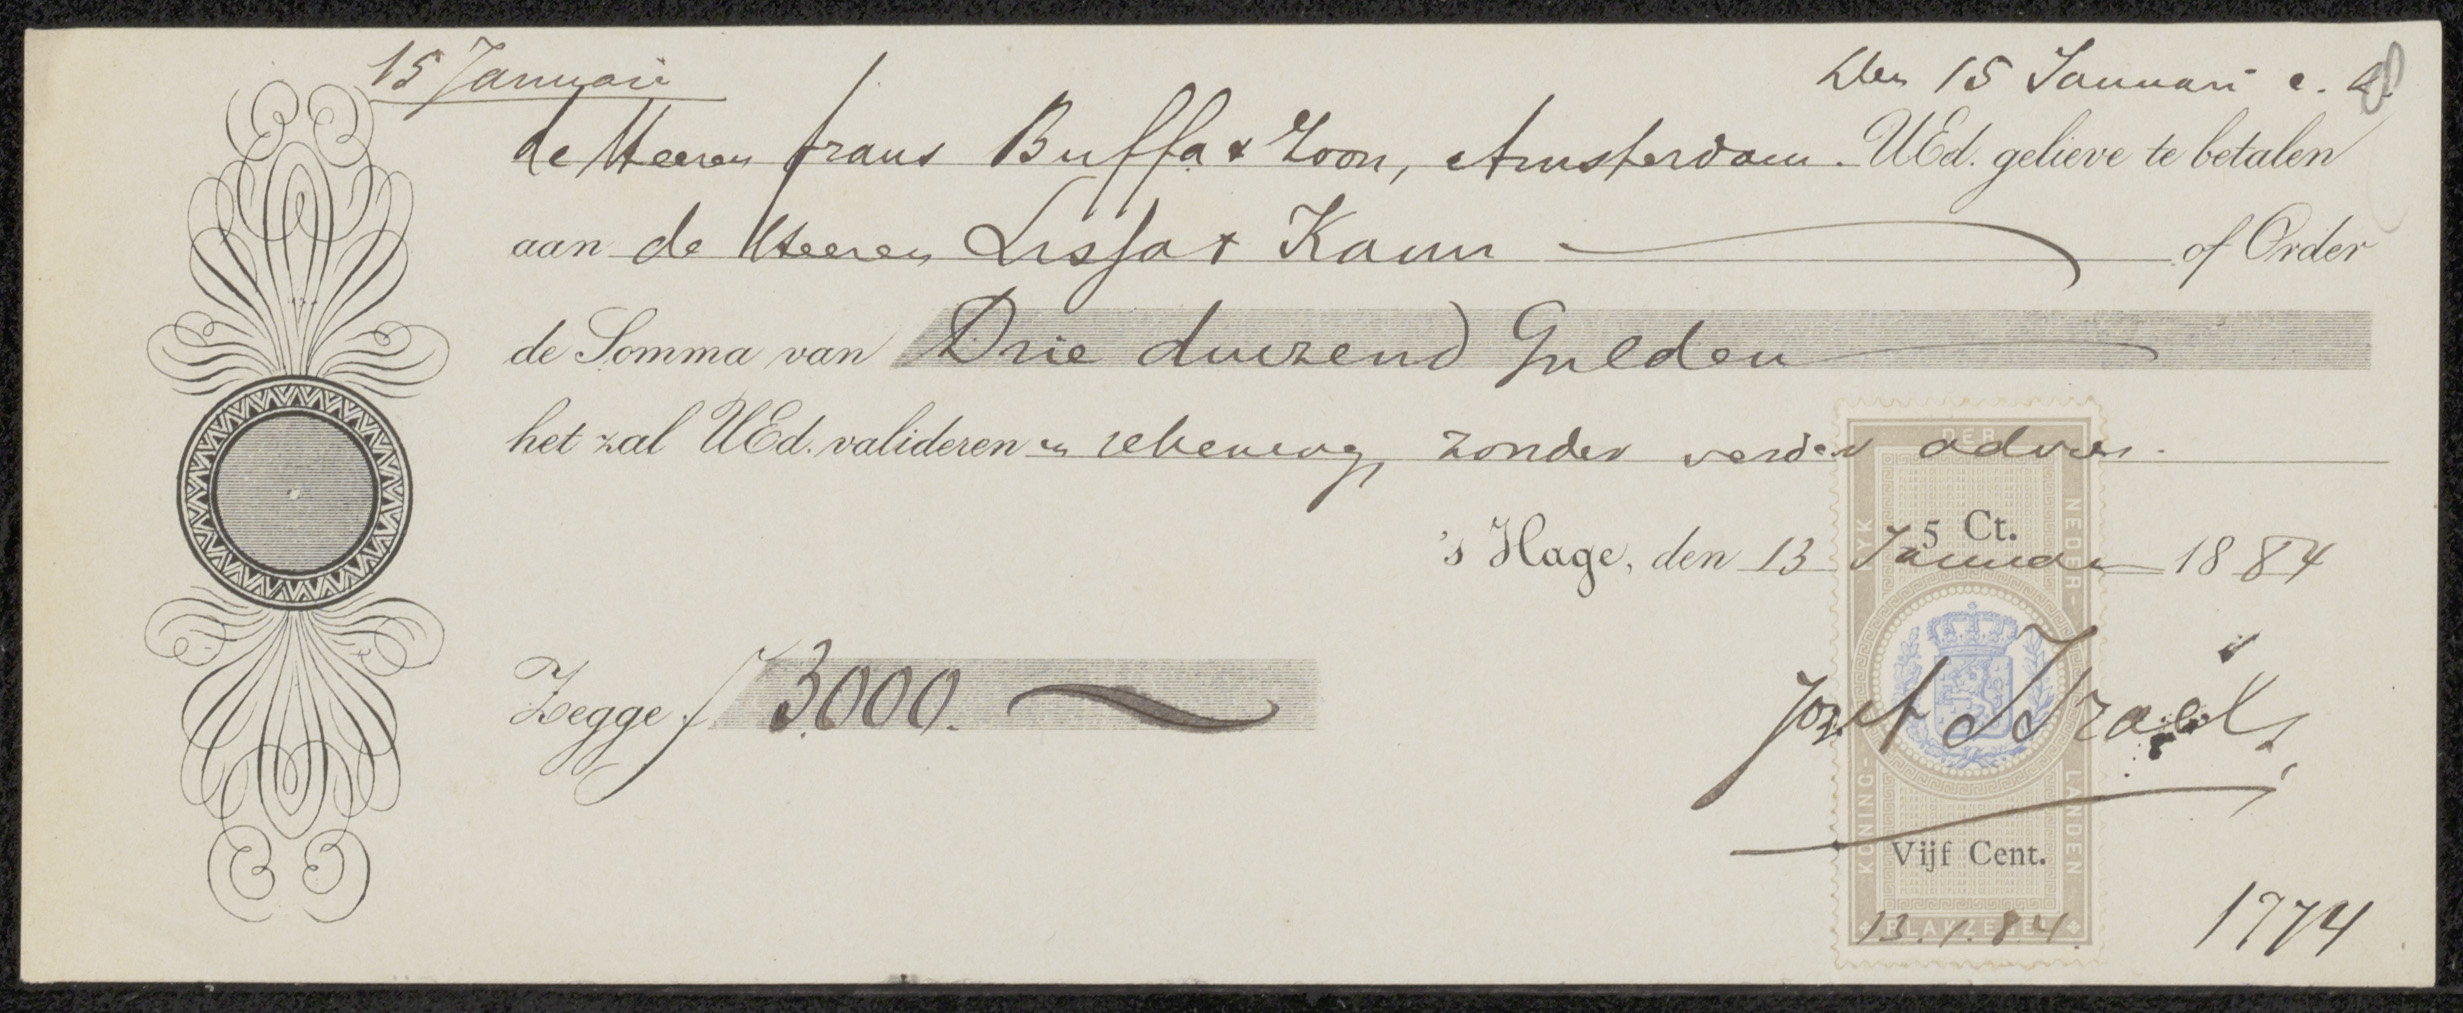 15 Januari
Den 15 Januari e.
de Heeren Frans Buffa & Zoon, Amsterdam. UEd. gelieve te betalen
aan de Heeren Lissa & Kann of Order
de Somma van Drie duizend Gulden
het zal UEd. valideren in rekening, zonder verder advies.
's Hage, den 13 Januari 1884
Zegge f 3000.
Jozef Israëls
DER
NEDER-LANDEN
KONING-RYK
PLAKZEGEL
5 Ct.
Vijf Cent.
13.1.84.
1774